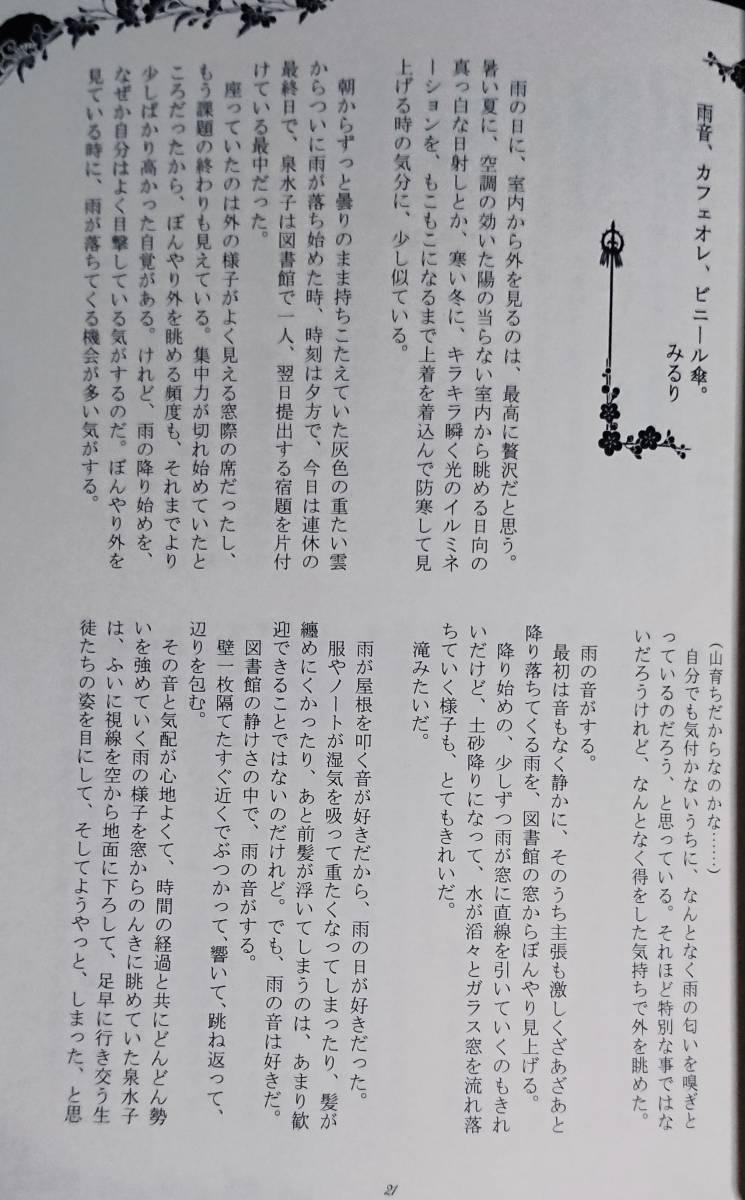 雨音、カフェオレ、ビニール傘。
みるり
雨の日に、室内から外を見るのは、最高に贅沢だと思う。
暑い夏に、空調の効いた陽の当らない室内から眺める日向の
真っ白な日射しとか、寒い冬に、キラキラ瞬く光のイルミネ
ーションを、もこもこになるまで上着を着込んで防寒して見
上げる時の気分に、少し似ている。
朝からずっと曇りのまま持ちこたえていた灰色の重たい雲
からついに雨が落ち始めた時、時刻は夕方で、今日は連休の
最終日で、泉水子は図書館で一人、翌日提出する宿題を片付
けている最中だった。
座っていたのは外の様子がよく見える窓際の席だったし、
もう課題の終わりも見えている。集中力が切れ始めていたと
ころだったから、ぼんやり外を眺める頻度も、それまでより
少しばかり高かった自覚がある。けれど、雨の降り始めを、
なぜか自分はよく目撃している気がするのだ。ぼんやり外を
見ている時に、雨が落ちてくる機会が多い気がする。
(山育ちだからなのかな……)
自分でも気付かないうちに、なんとなく雨の匂いを嗅ぎと
っているのだろう、と思っている。それほど特別な事ではな
いだろうけれど、なんとなく得をした気持ちで外を眺めた。
雨の音がする。
最初は音もなく静かに、そのうち主張も激しくざあざあと
降り落ちてくる雨を、図書館の窓からぼんやり見上げる。
降り始めの、少しずつ雨が窓に直線を引いていくのもきれ
いだけど、土砂降りになって、水が滔々とガラス窓を流れ落
ちていく様子も、とてもきれいだ。
滝みたいだ。
雨が屋根を叩く音が好きだから、雨の日が好きだった。
服やノートが湿気を吸って重たくなってしまったり、髪が
纏めにくかったり、あと前髪が浮いてしまうのは、あまり歓
迎できることではないのだけれど。でも、雨の音は好きだ。
図書館の静けさの中で、雨の音がする。
壁一枚隔てたすぐ近くでぶつかって、響いて、跳ね返って、
辺りを包む。
その音と気配が心地よくて、時間の経過と共にどんどん勢
いを強めていく雨の様子を窓からのんきに眺めていた泉水子
は、ふいに視線を空から地面に下ろして、足早に行き交う生
徒たちの姿を目にして、そしてようやっと、しまった、と思
21